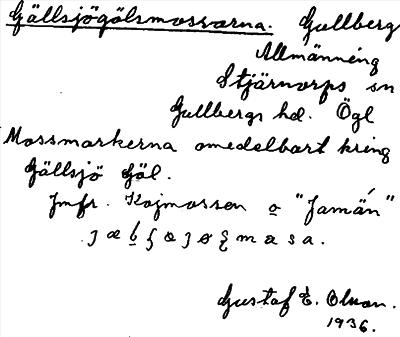 Gällsjögölsmossarna. Gullberg
Allmänning
Stjärnorps sn
Gullbergs hd. Ögl
Mossmarkerna omedelbart kring
Gällsjö Göl.
Jmfr. Kojmossen o "Jamán"
Gustaf E. Olson.
1936.